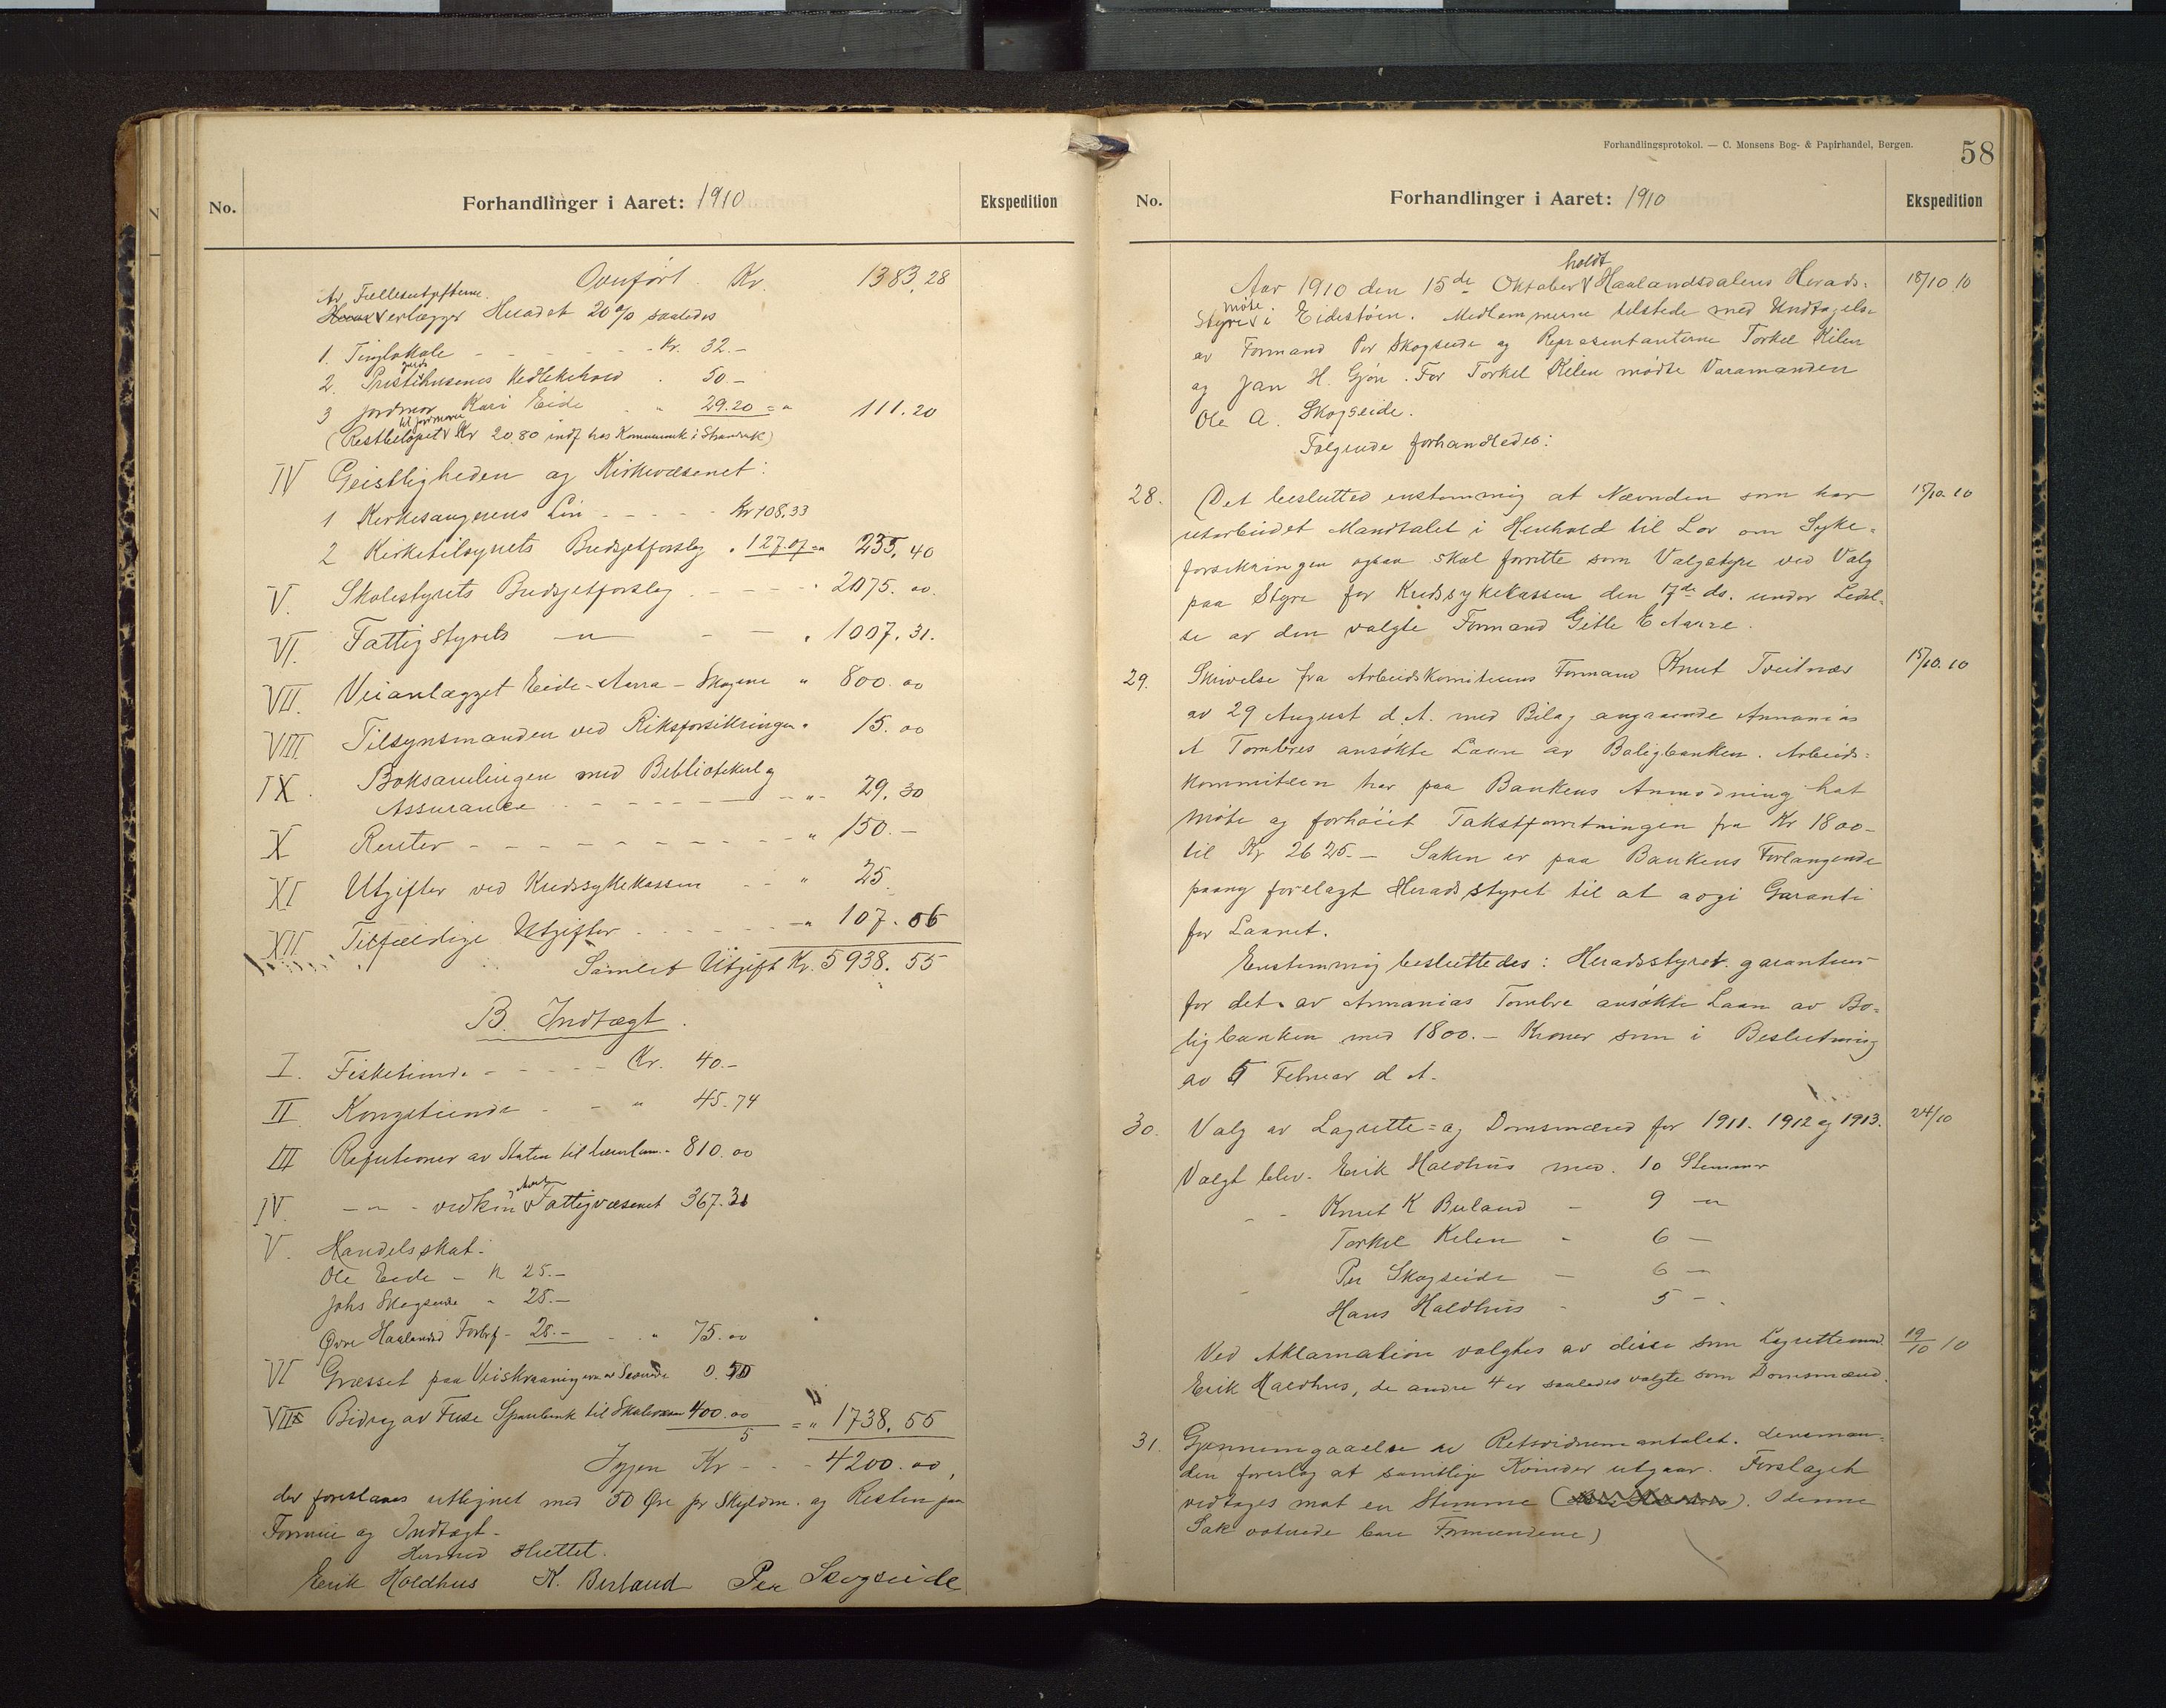 No.
Forhandlinger i Aaret: 1910
Ekspedition
Overført Kr. 1383,28
Av Fællesutgifterne
verlægger Heradet 20% saaledes
1. Tinglokale - - - - - Kr. 32.-
2 Præstegaardshusenes Vedlikehold . 50.-
3 Jordmor Kari Eide " 29.20 = " 111.20
(Restbeløpet til Jordmoren Kr 20.80 indf hos Kommunek i Strandvik)
IV Geistligheden og Kirkevæsenet:
1 Kirkesangerens Løn - - - - Kr 108.33
2 Kirketilsynets Budsjetforslag " 127.07 = " 235,40
V. Skolestyrets Budsjetforslag - - - - " 2075.00.
VI. Fattigstyrets — " — - — " 1007.31.
VII. Veianlægget Eide-Aarra-Skogene " 800.00
VIII. Tilsynsmanden ved Riksforsikringen " 15.00
IX. Boksamlingen med Bibliotekarløn
Assurance - - - - - - - " 29,30
X Renter - - - - - - - - - " 150.-
XI Utgifter ved Kredssykekassen - - " 25
XII Tilfældige Utgifter - - - - - - " 107.06
Samlet Utgift Kr. 5938.55
B. Indtægt.
I. Fisketiende - - - - - Kr. 40.-
II Kongetiende - - " 45.74
III Refusioner av Staten til Lærerløn - 810.00
IV. — " — vedkm Fattigvæsenet 367.31
V. Handelsskat:
Ole Eide - Kr 25.-
Johs Skogseide " 25.-
Øvre Haalandsd Forbrf - 25.- - - " 75.00
VI Græsset paa Veiskraaningerne 0.50
VII Bidrag av Fuse Sparebank til Skolevæsen 400.00 = " 1738.55
5
Igjen Kr - - - 4200.00,
der foreslaaes utlignet med 50 Øre pr Skyldm. og Resten paa
Formue og Indtægt.
Hermed sluttet.
Erik Holdhus K. Berland Per Skogseide
Forhandlingsprotokol. — C. Monsens Bog- & Papirhandel, Bergen.
58
No.
Forhandlinger i Aaret: 1910
Ekspedition
Aar 1910 den 15de Oktober holdt Haalandsdalens Herads= 18/10 10
styre møte i Eidestøen. Medlemmerne tilstede med Undtagelse
av Formand Per Skogseide og Repræsentanterne Torkel Kilen
og Jan H. Gjøn. For Torkel Kilen mødte Varamanden
Ole A. Skogseide.
Følgende forhandledes:
28. Det besluttes enstemmig at Nævnden som har 15/10.10
utarbeidet Mandtalet i Henhold til Lov om Syke=
forsikringen ogsaa skal forrette som Valgstyre ved Valg
paa Styre for Kredssykekassen den 17de ds. under Ledel=
se av den valgte Formand Gitle E Aarre.
29. Skrivelse fra Arbeidskomiteens Formand Knut Tveitnæs 15/10.10
av 29 August d.A. med Bilag angaaende Annanias
A Tombres ansøkte Laan av Boligbanken. Arbeids=
kommiteen har paa Bankens Anmodning hat
Møte og forhøiet Takstforretningen fra Kr 1800-
til Kr 2625.- Saken er paa Bankens Forlangende
paany forelagt Heradsstyret til at avgi Garanti
for Laanet.
Enstemmig besluttedes: Heradsstyret garanterer
for det av Annanias Tombre ansøkte Laan av Bo=
ligbanken med 1800.- Kroner som i Beslutning
av 5 Februar d A.
30. Valg av Lagrette= og Domsmænd for 1911. 1912 og 1913. 24/10
Valgt blev. Erik Haldhus med. 10 Stemmer
- - Knut K Buland - 9 — "
Torkel Kilen - 6 —
Per Skogseide — 6 —
Hans Haldhus - 5 —.
Ved Aklamation valgtes av disse som Lagrettemand 19/10 10
Erik Haldhus, de andre 4 er saaledes valgte som Domsmænd.
31. Gjennemgaaelse av Retsvidnemantalet. Lensman=
den foreslog at samtlige Kvinder utgaar. Forslaget
vedtages mot en Stemme ( ). I denne
Sak voterede bare Formændene)